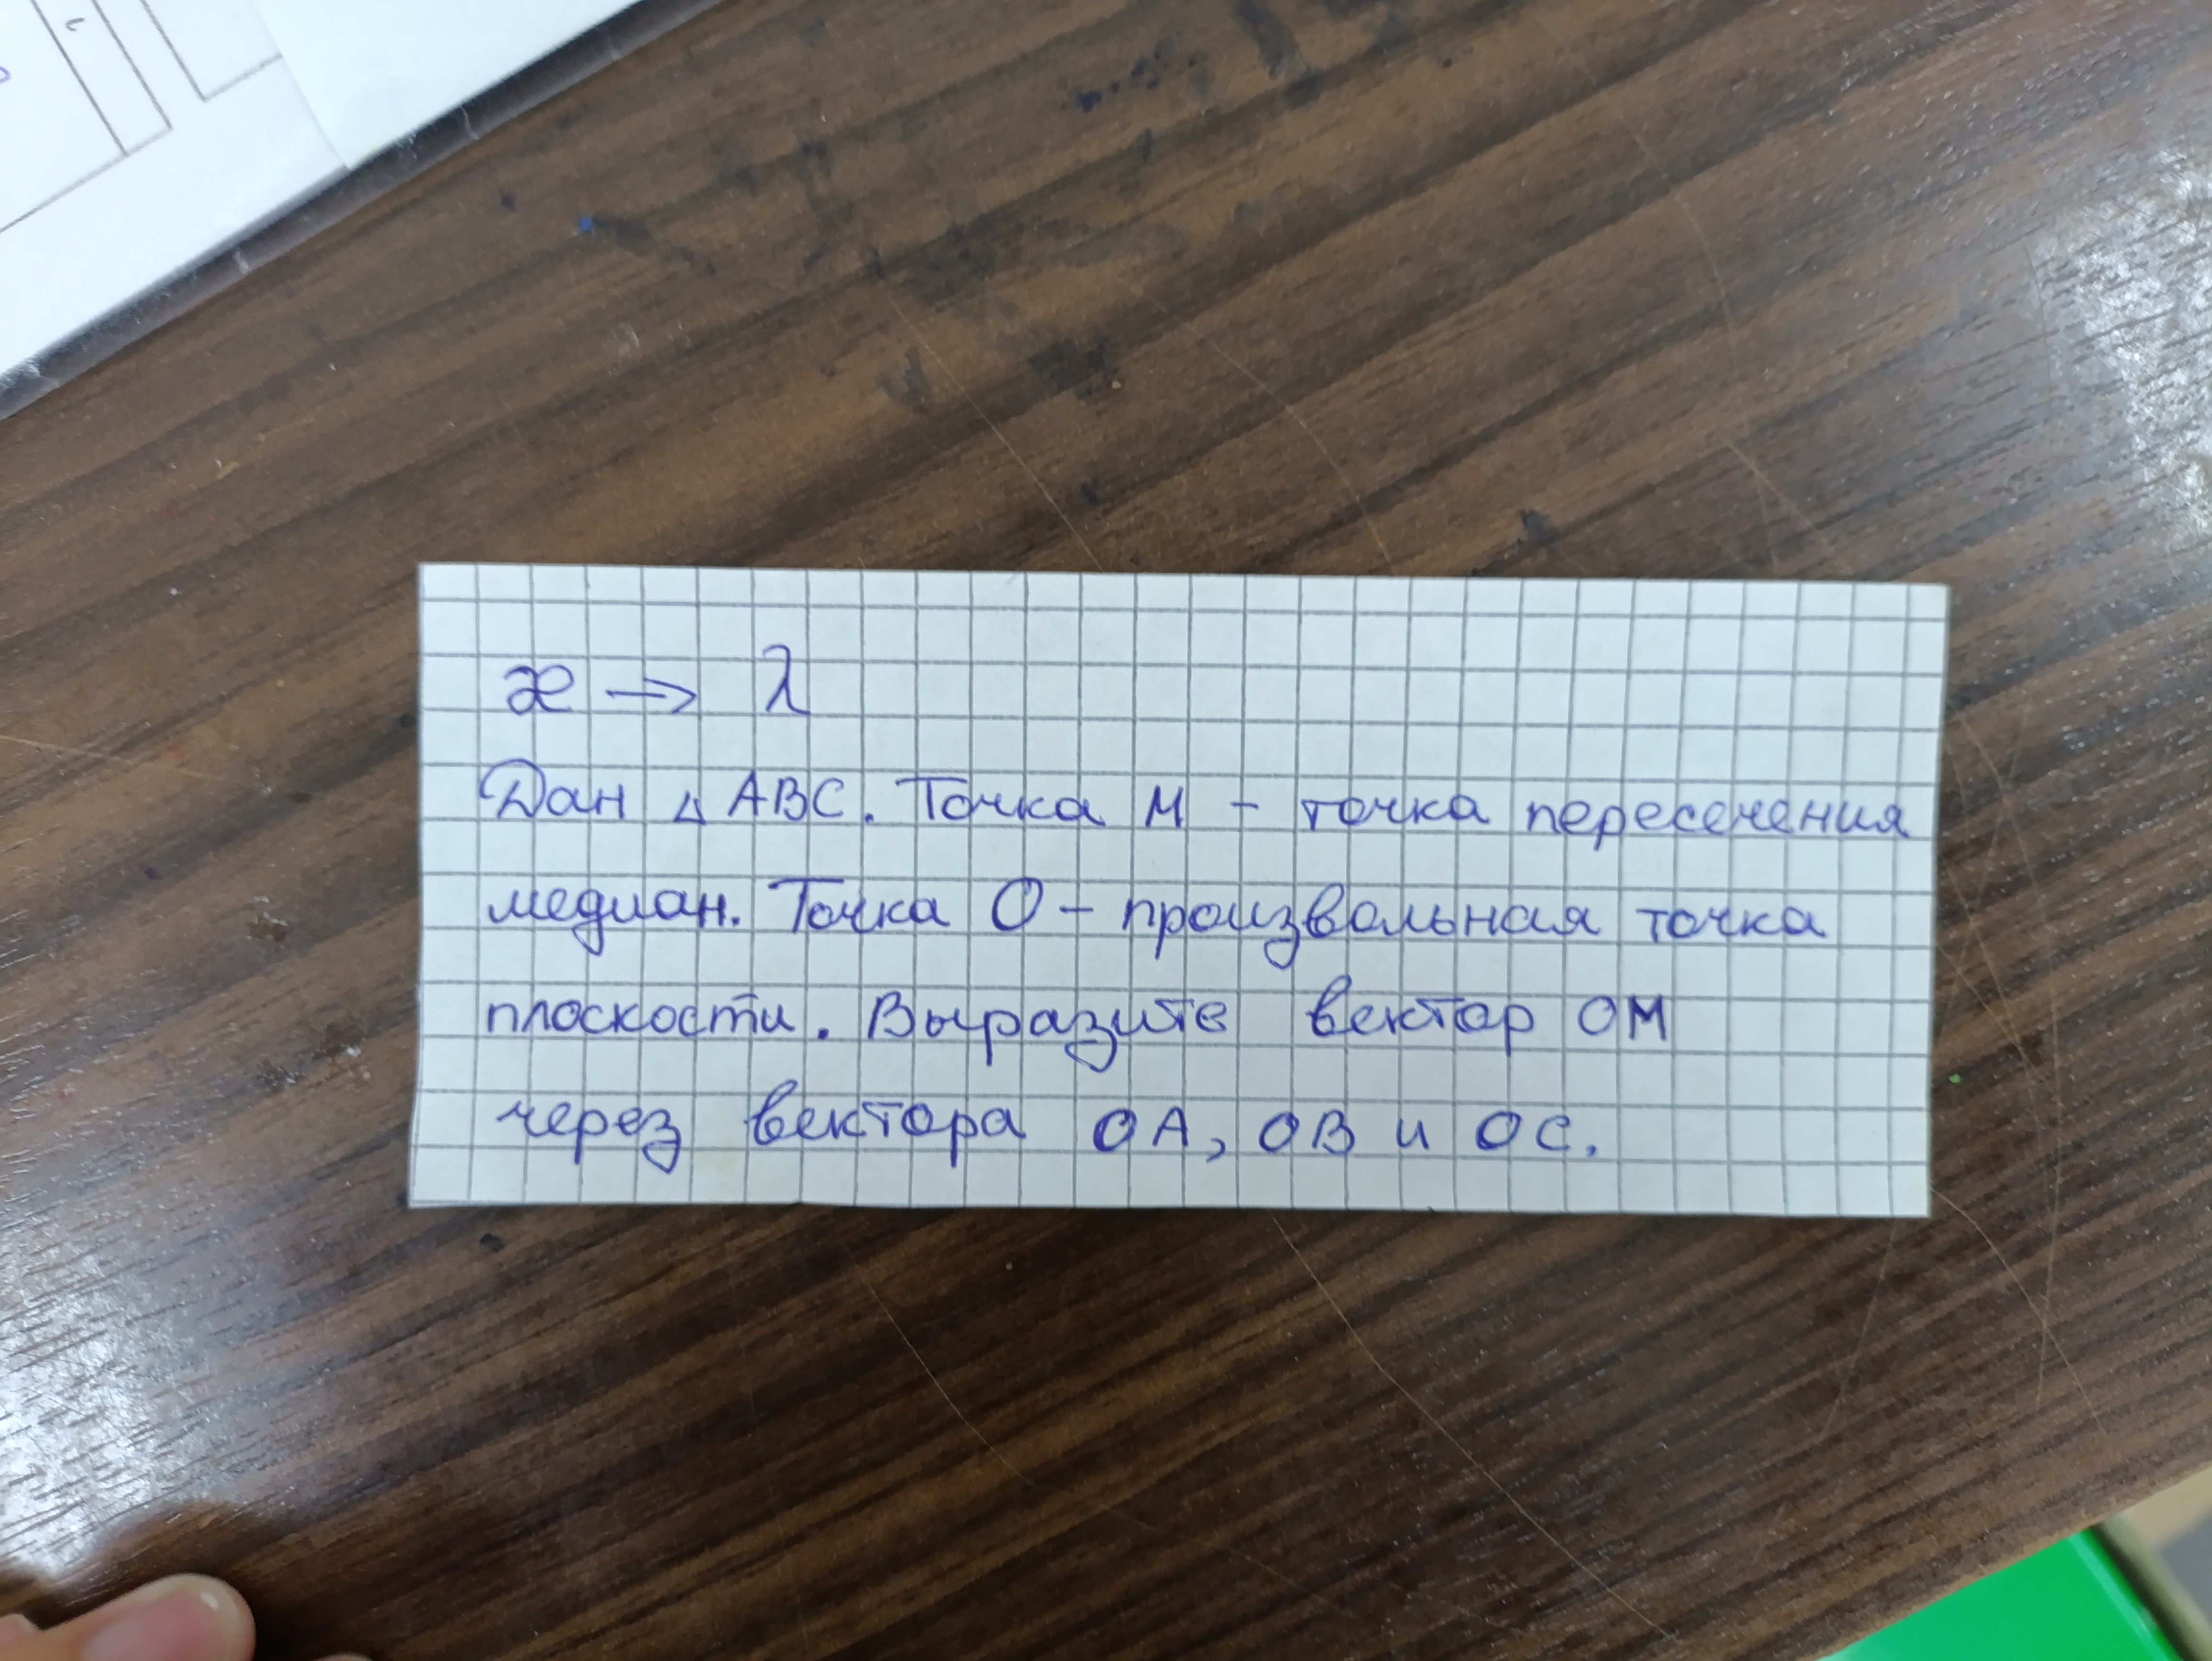 æ → λ
Дан △ ABC. Точка M - точка пересечения
медиан. Точка O - произвольная точка
плоскости. Выразите вектор OM
через вектора OA, OB и OC.